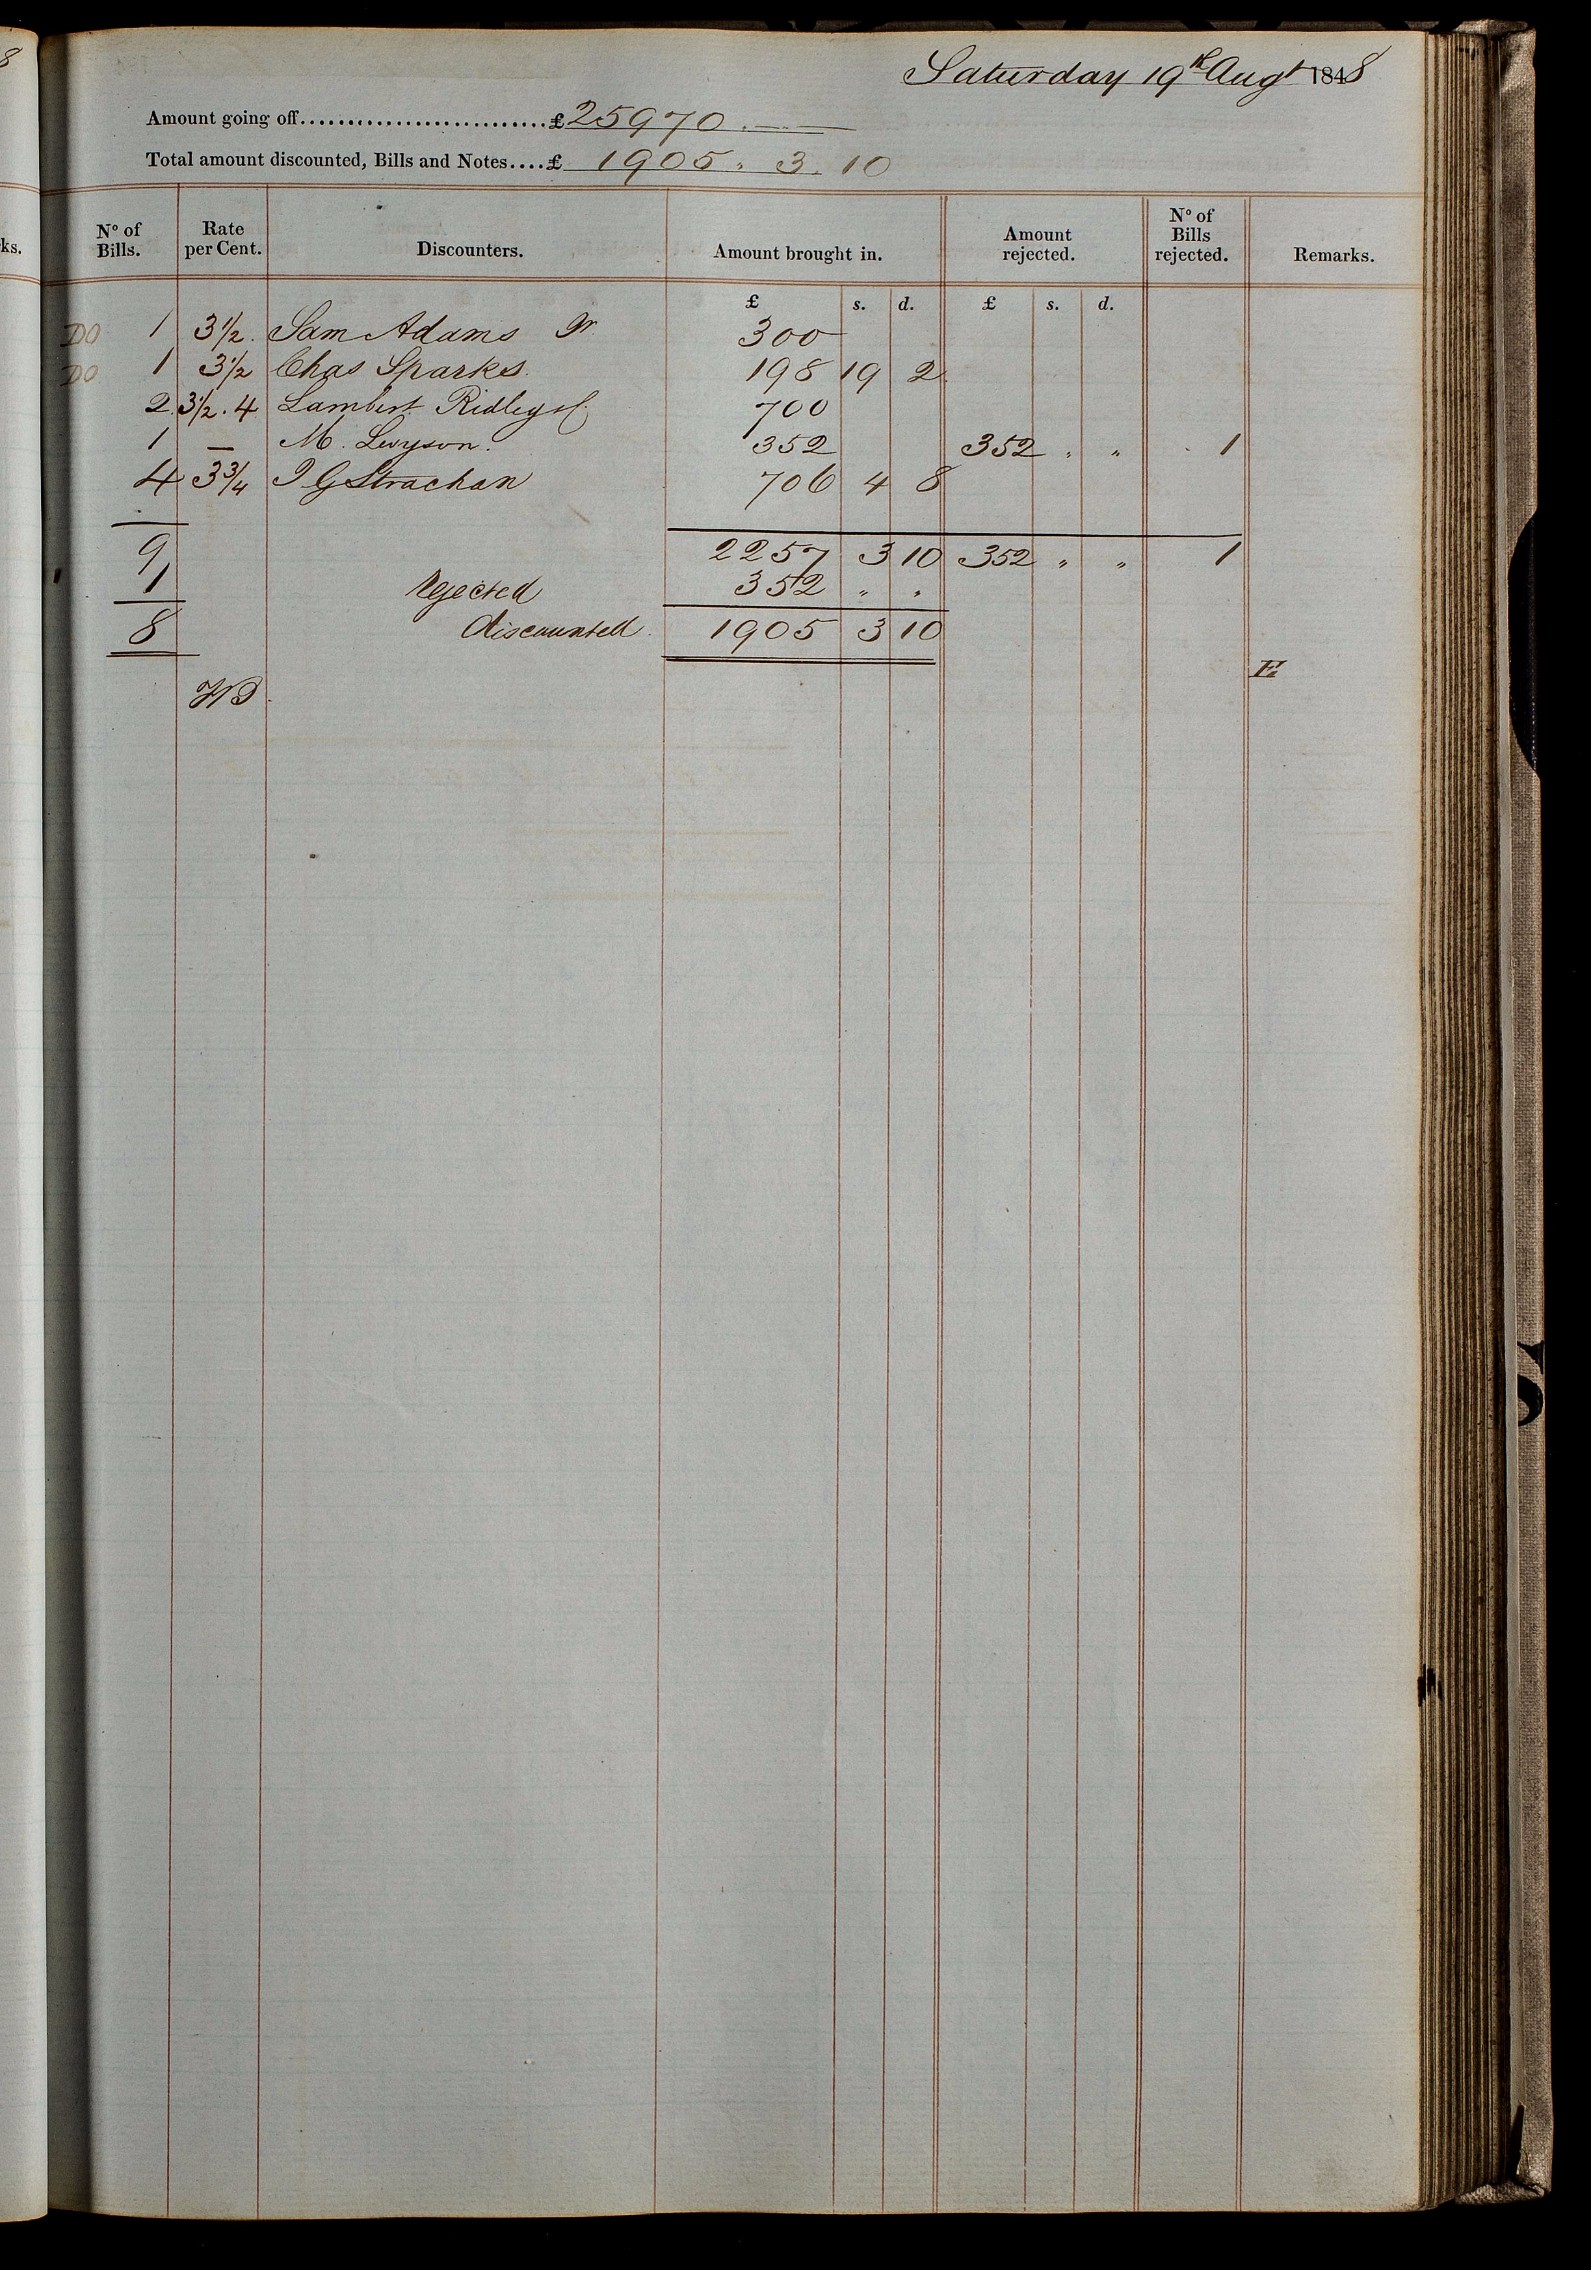 Saturday 19th Augt 1848
Amount going off..........................£25970. — —
Total amount discounted, Bills and Notes....£ 1905. 3. 10
No of Bills. Rate per Cent. Discounters. Amount brought in. Amount rejected. No of Bills rejected. Remarks.
£ s. d. £ s. d.
DO 1 3½. Sam Adams Jr 300
DO 1 3½ Chas Sparks. 198 19 2
2. 3½. 4 Lambert Ridley 700
1 — M. 352 352 „ „ 1
4 3¾ J G Strachan 706 4 8
9 2257 3 10 352 „ „ 1
1 rejected 352 „ „
8 discounted 1905 3 10
E
ks.
8